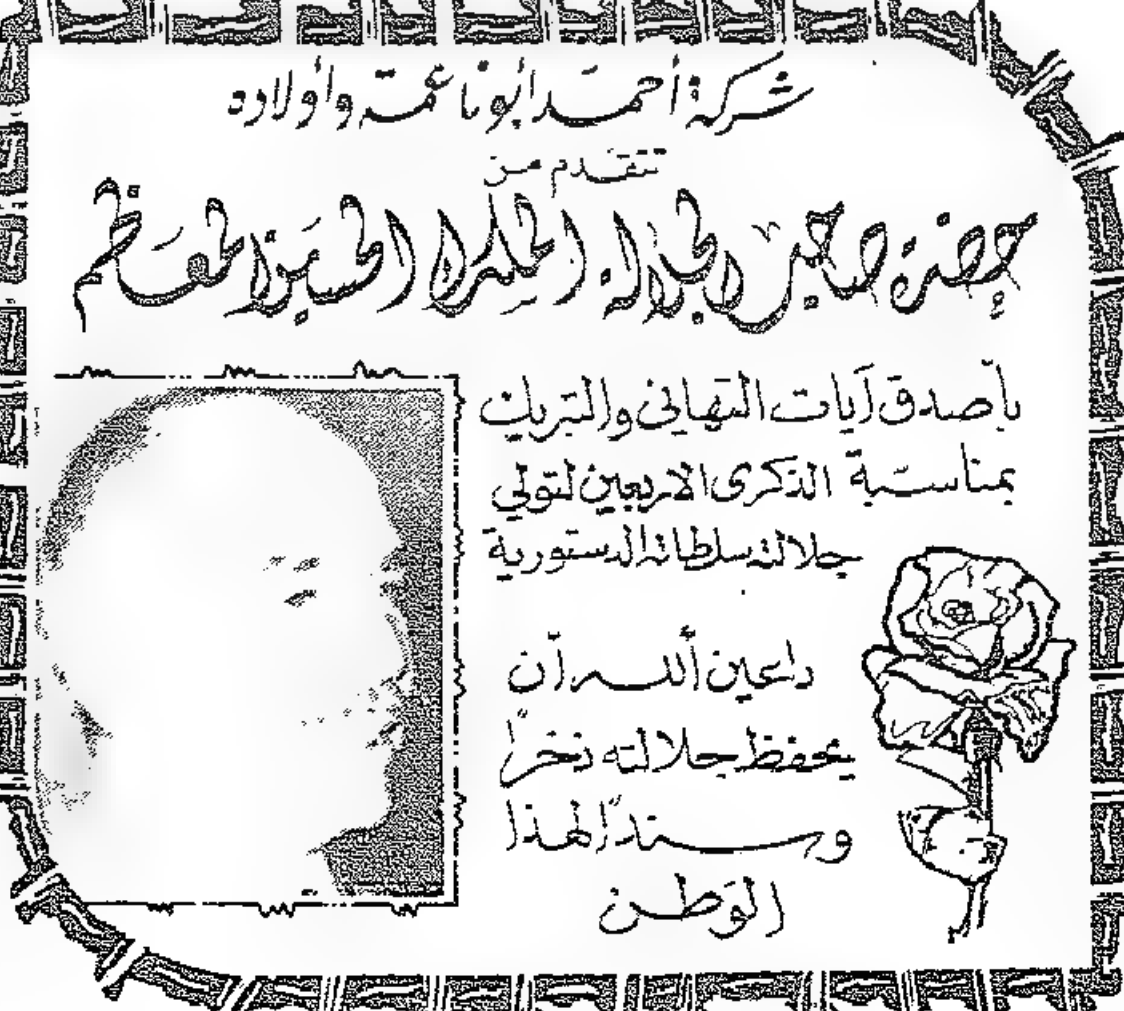 شركة أحمد أبو ناعمة وأولاده
تتقدم من
حضرة صاحب الجلالة الملك الحسين المعظم
بأصدق آيات التهاني والتبريك
بمناسبة الذكرى الاربعين لتولي
جلالته سلطاته الدستورية
داعين ألله أن
يحفظ جلالته ذخراً
وسنداً لهذا
الوطن